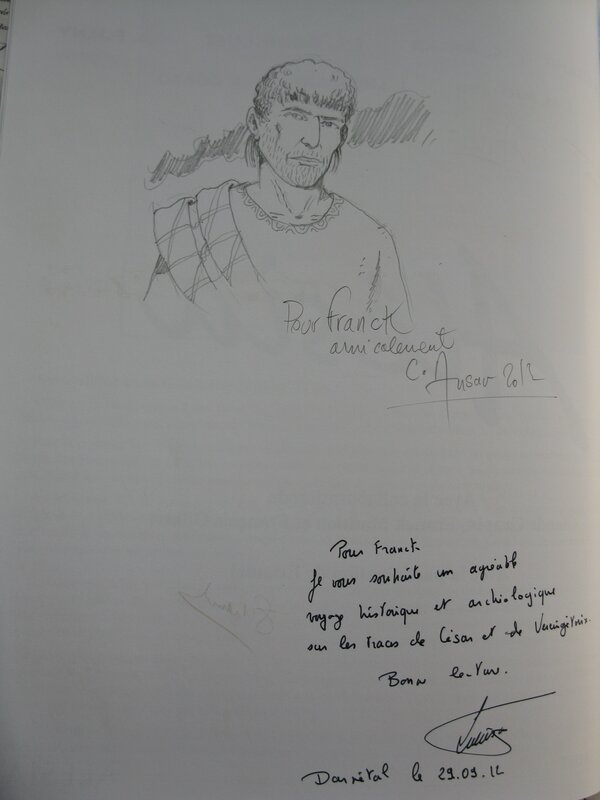 Pour Franck
amicalement
C. Ansar 2012
Pour Franck
Je vous souhaite un agréable
voyage historique et archéologique
sur les traces de César et de Vercingétorix.
Bonne lecture.
Darnétal le 29.09.12